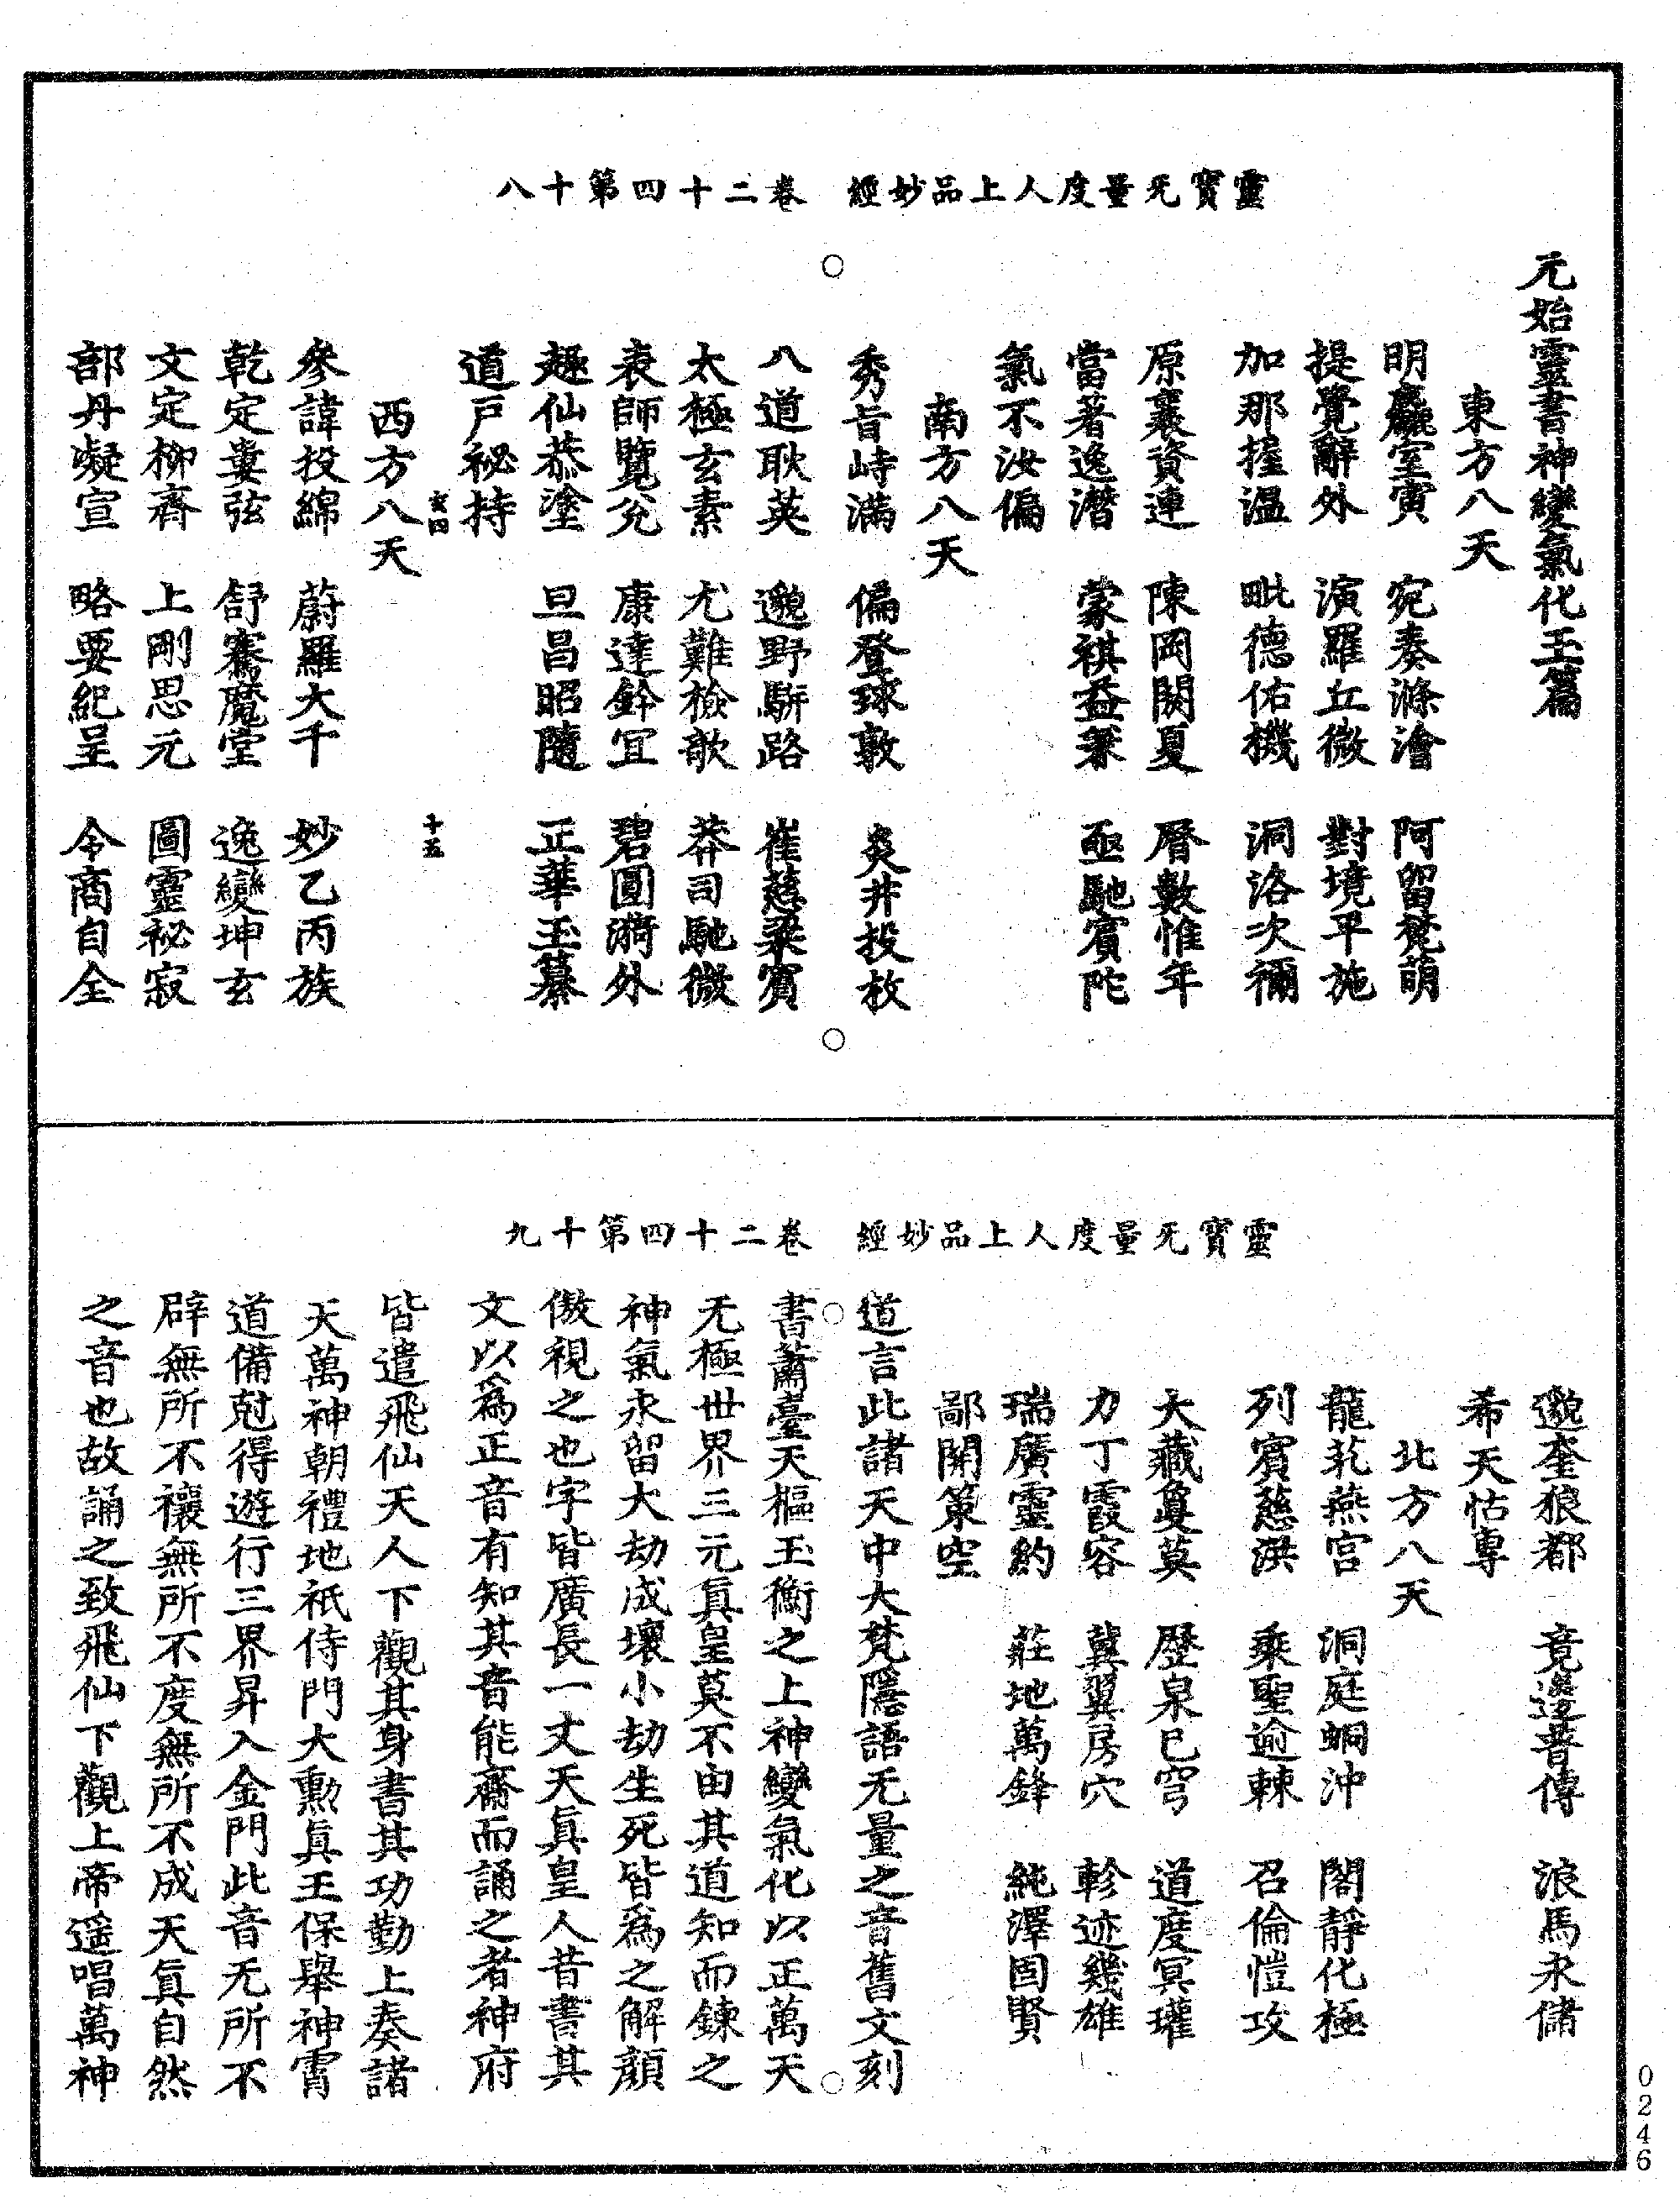 靈寶无量度人上品妙經　卷二十四第十八
元始靈書神變氣化玉篇
東方八天
明麣室寅　宛奏滌澮　阿留梵萌
提覺辭外　演羅丘微　對境平施
加那握温　毗德佑機　洞洛次禰
原襄資連　陳岡闕夏　曆數惟年
當著逸潛　蒙祺益秉　亟馳賓陀
氣不汝偏
南方八天
秀旨峙滿　偏登球敦　炎井投枚
八道耿英　邈野駢路　崔慈梁賓
太極玄素　尤難檢歆　莽司馳微
衷師覽兊　康達鈐冝　碧圓漪外
趣仙恭塗　旦昌昭隨　正華玉纂
道戸祕持
玄四　十五
西方八天
參諱投綿　蔚羅大千　妙乙丙族
乾定婁弦　舒騫魔堂　逸變坤玄
文定柳齊　上剛思元　圖靈祕寂
部丹凝宣　略要紀呈　令商自全
靈寶无量度人上品妙經　卷二十四第十九
邈奎狼都　竟邊普傳　浪馬永儲
希天怙專
北方八天
龍芤燕宫　洞庭蜩沖　閣靜化極
列賓慈洪　乘聖逾棘　召倫愷攻
大藏敻莫　歷泉巳穹　道度冥瓘
力丁霞容　冀翼房穴　軫迹幾雄
瑞廣靈約　莊地萬鋒　純澤固賢
鄙開策空
道言此諸天中大梵隱語无量之音舊文刻
書蕭臺天樞玉衡之上神變氣化以正萬天
无極世界三元眞皇莫不由其道知而鍊之
神氣永留大劫成壞小劫生死皆爲之解顏
傲視之也字皆廣長一丈天眞皇人昔書其
文以爲正音有知其音能齋而誦之者神府
皆遣飛仙天人下觀其身書其功勤上奏諸
天萬神朝禮地祇侍門大勳眞王保舉神霄
道備尅得遊行三界昇入金門此音无所不
辟無所不禳無所不度無所不成天眞自然
之音也故誦之致飛仙下觀上帝遥唱萬神
0246